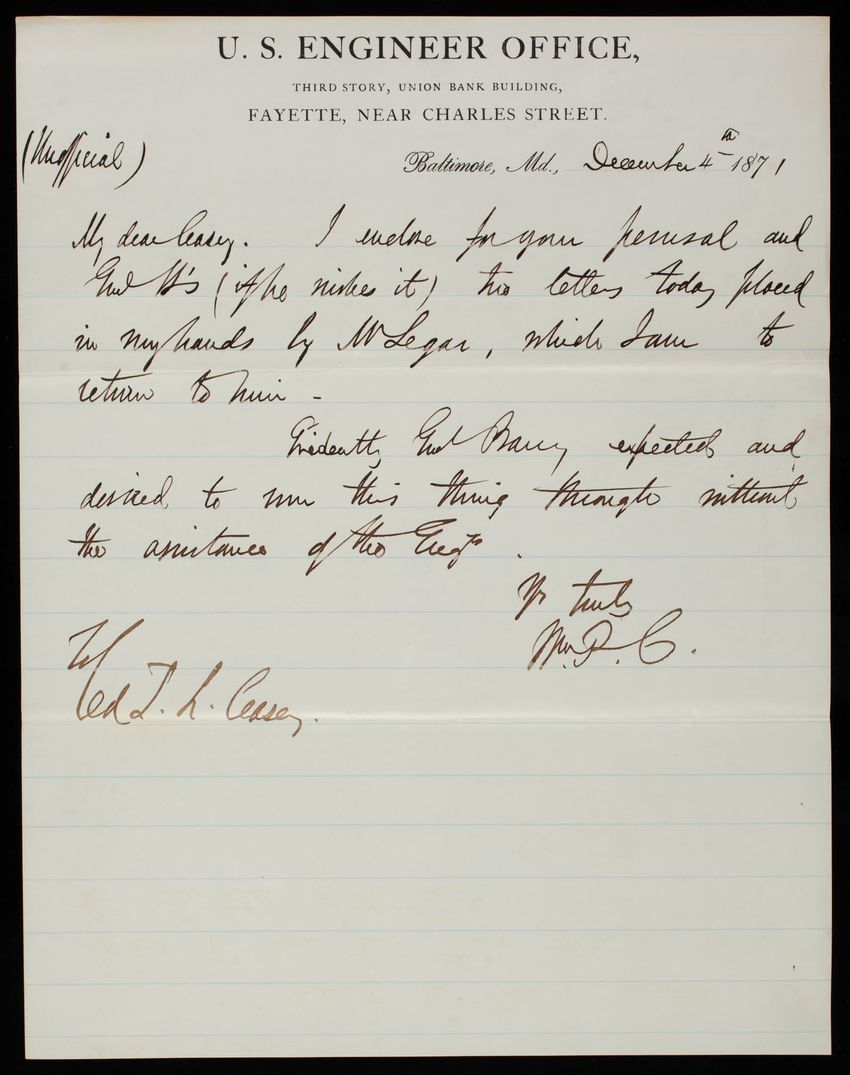 U. S. ENGINEER OFFICE,
THIRD STORY, UNION BANK BUILDING,
FAYETTE, NEAR CHARLES STREET.
(Unofficial)
Baltimore, Md., December 4th 1871
My dear Casey. I enclose for your perusal and
Genl H's (if he wishes it) two letters today placed
in my hands by Mr Legar, which I am to
return to him -
Evidently Genl Barry expected and
desired to run this thing through without
the assistance of the Engrs.
Yr truly
Wm. P. C.
To
T. L. Casey.